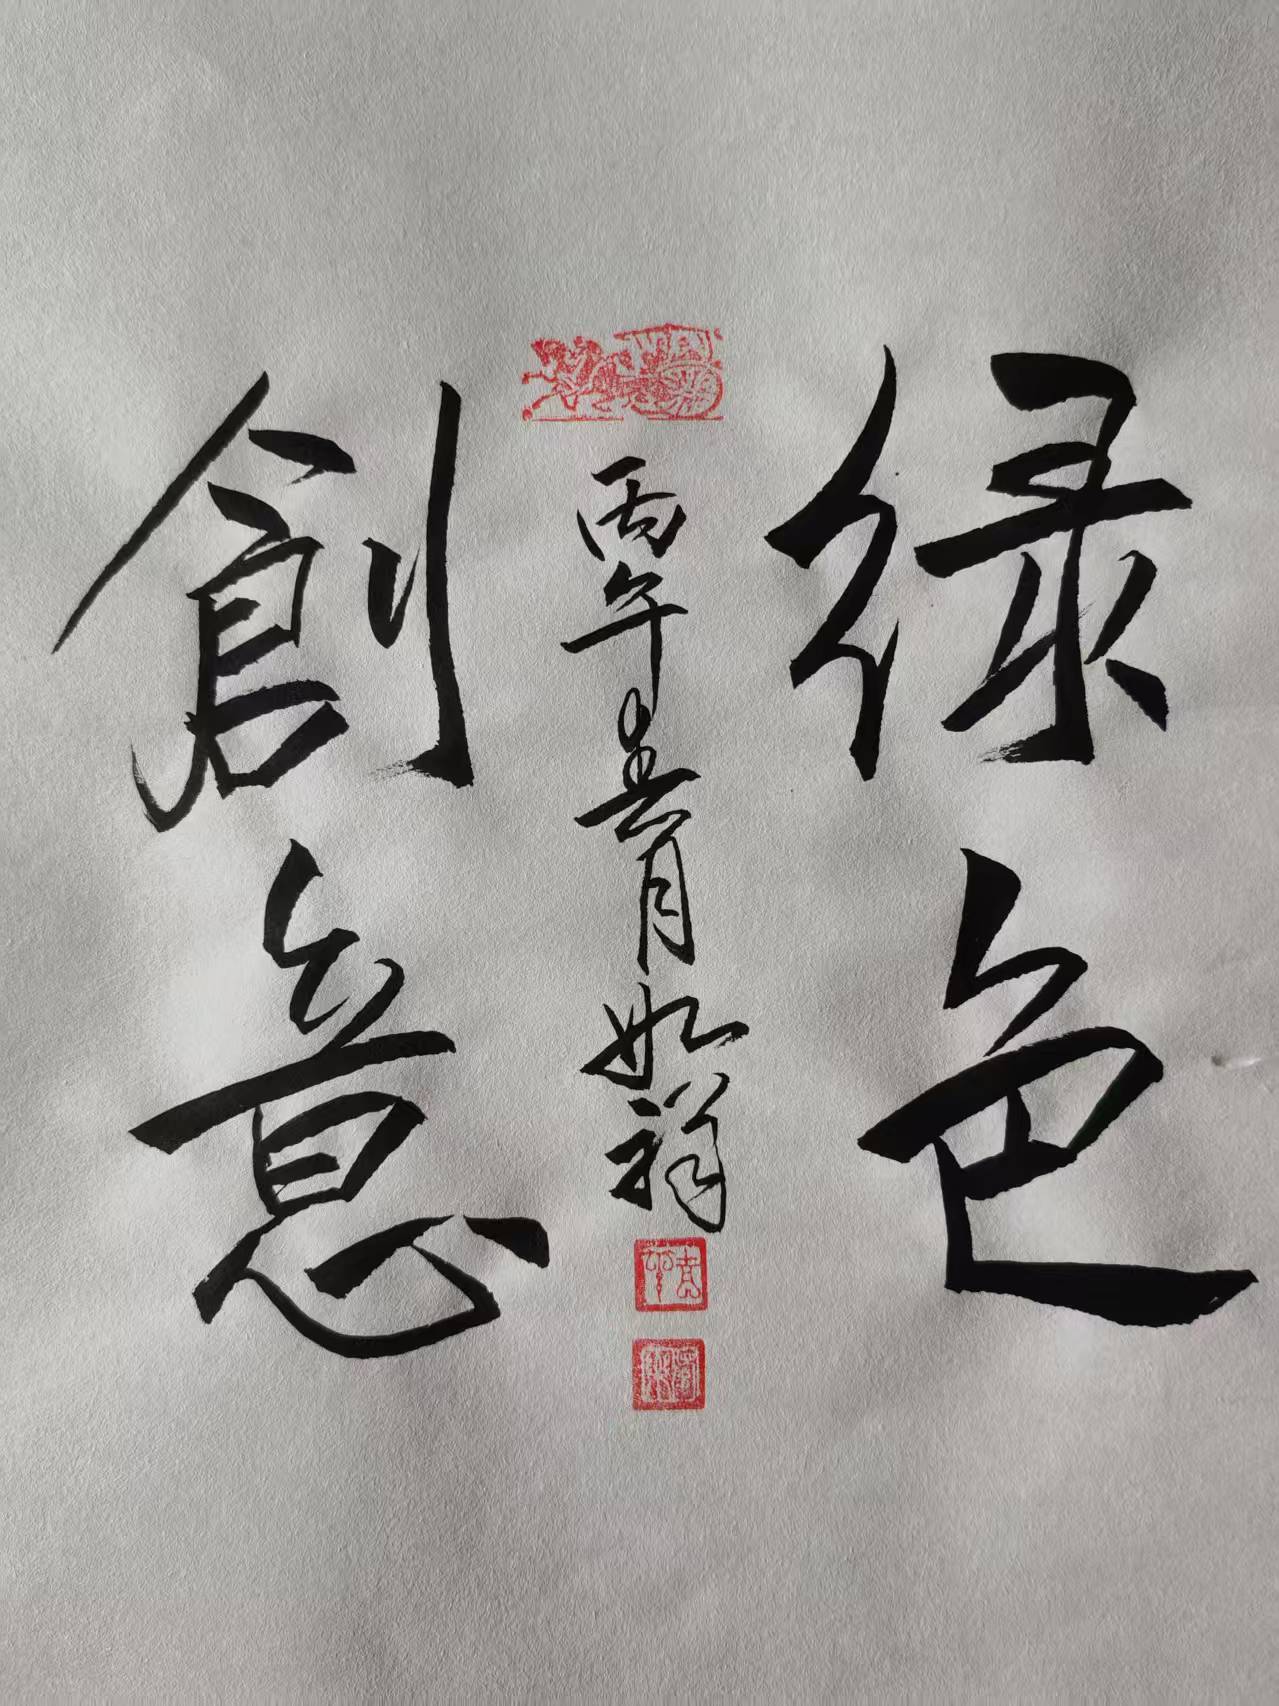 绿色
創意
丙午春月如祥